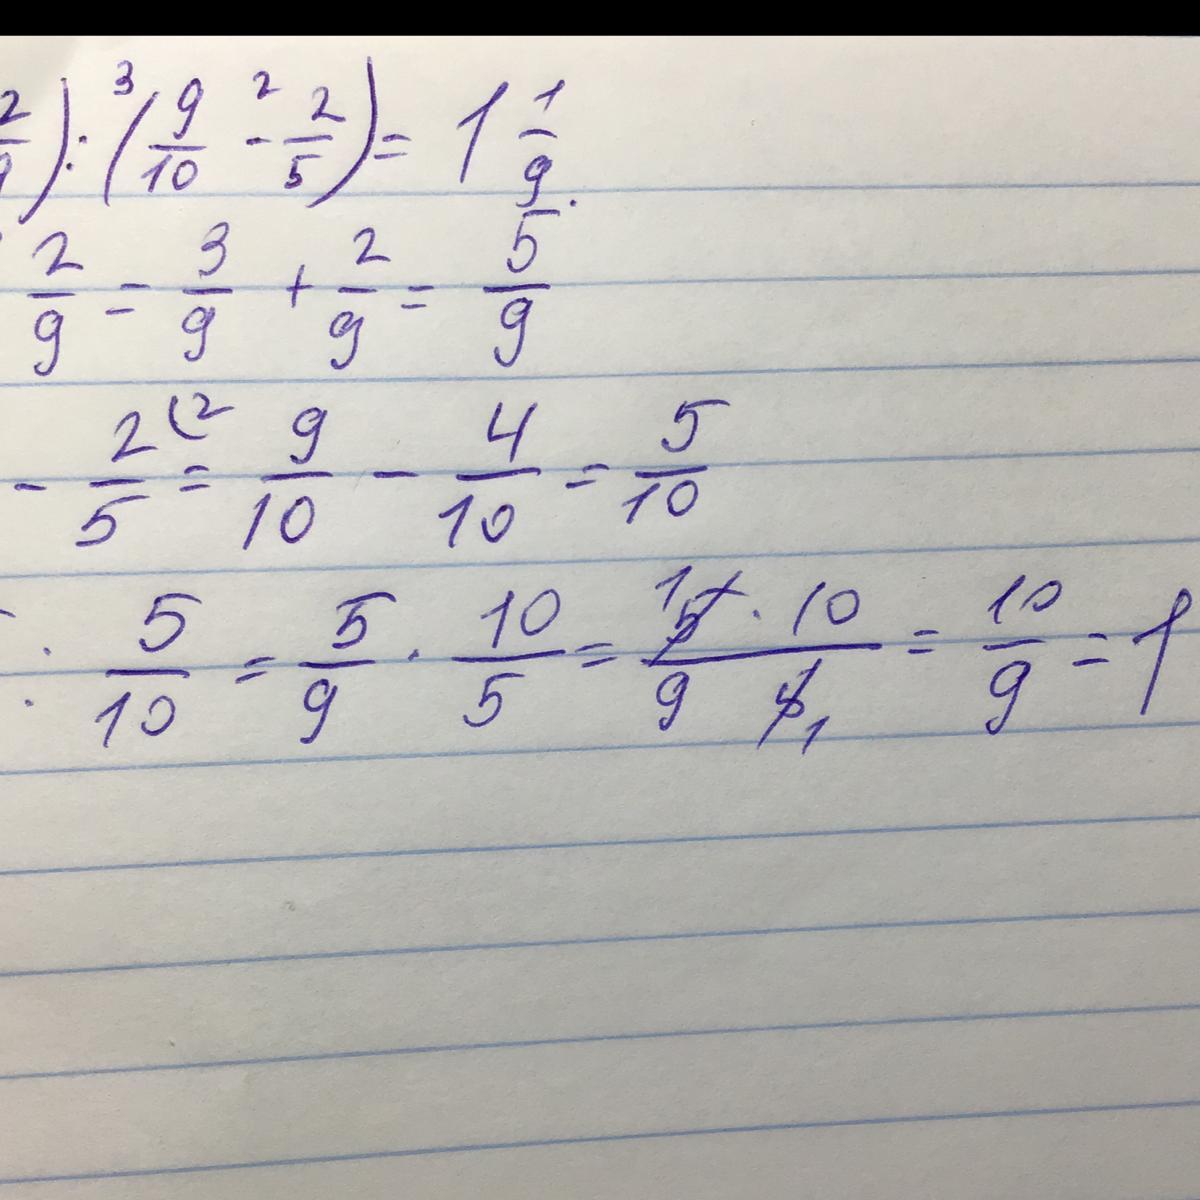 2/9) : ³(9/10 -² 2/5) = 1 1/9.
2/9 = 3/9 + 2/9 = 5/9
- 2/5 (2 = 9/10 - 4/10 = 5/10
: 5/10 = 5/9 · 10/5 = 5 1 · 10 / 9 5 1 = 10/9 = 1